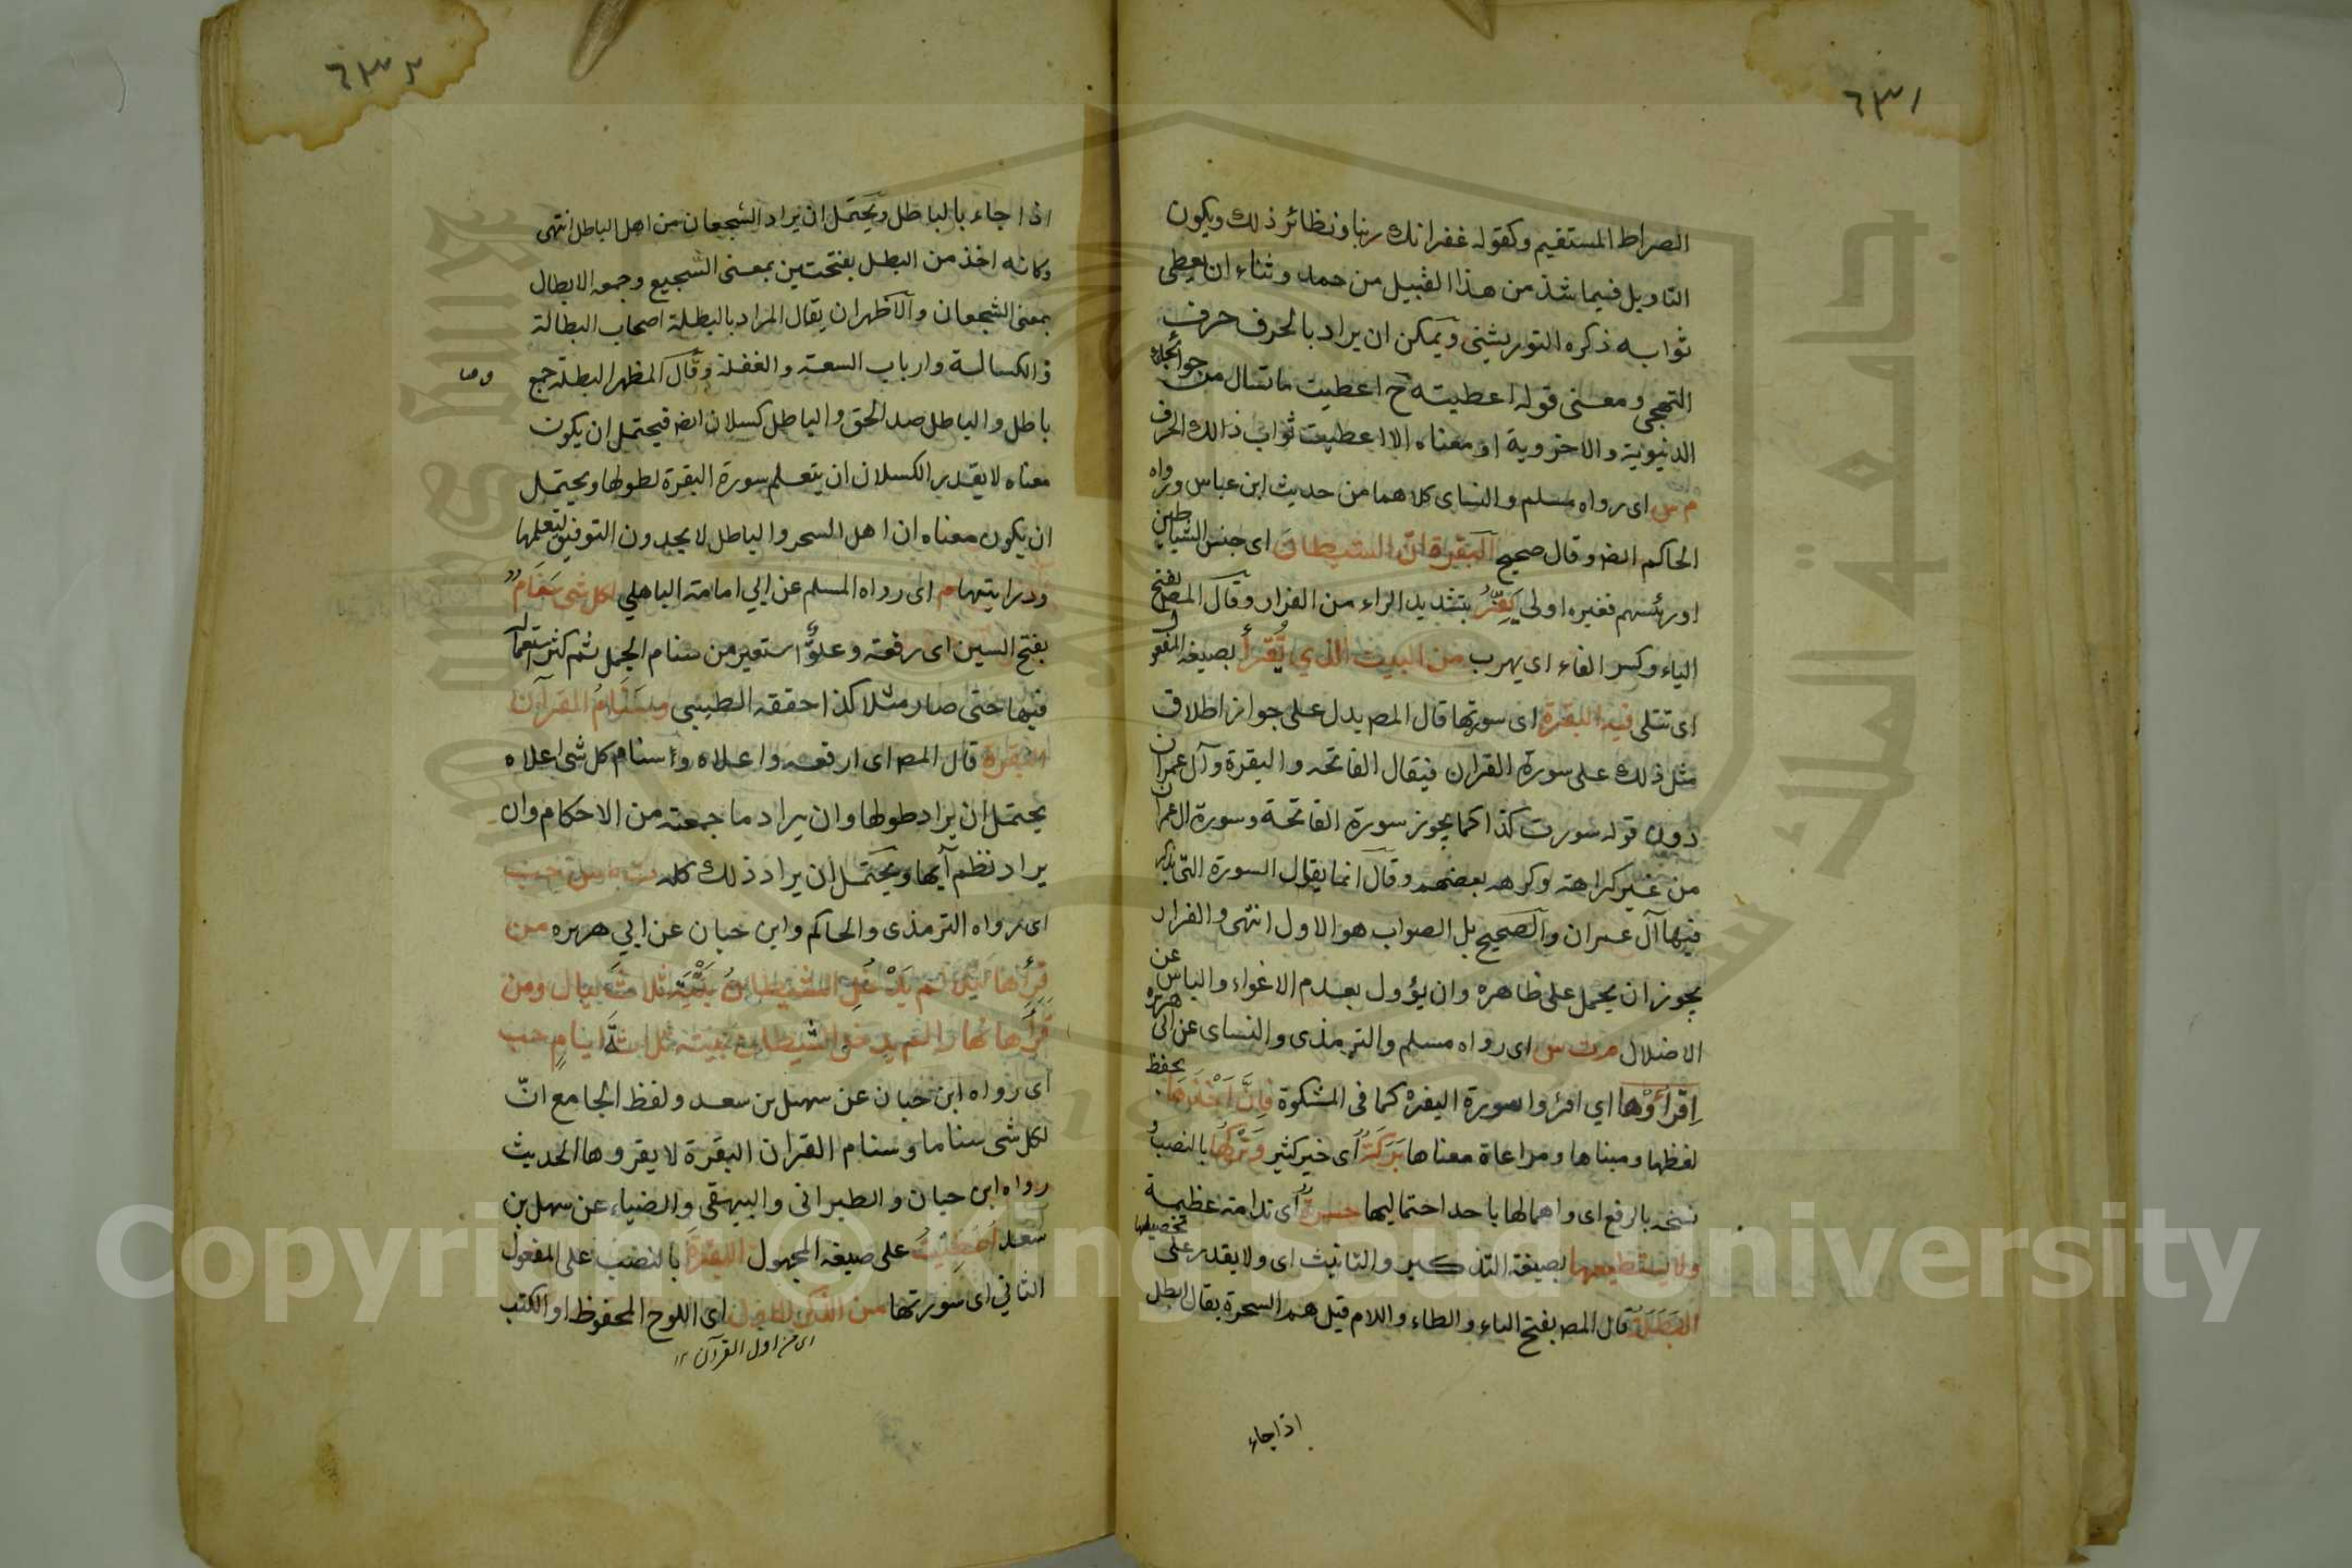 ٦٣١
الصراط المستقيم وكقوله غفرانك ربنا ونظائر ذلك ويكون
التاويل فيما شذ من هذا القبيل من حمد وثناء ان يعطى
ثوابه ذكره التوربشتى ويمكن ان يراد بالحرف حرف
التهجى ومعنى قوله اعطيته ح اعطيت ما تسال من حوائجك
الدنيوية والاخروية او معناه الا اعطيت ثواب ذالك الحرف
م س اى رواه مسلم والنساى كلاهما من حديث ابن عباس ورواه
الحاكم ايضا وقال صحيح البقرة ان الشيطان اى جنس الشياطين
او رئسهم فغيره اولى يَفِرُّ بتشديد الراء من الفرار وقال المص بفتح
الياء وكسر الفاء اى يهرب من البيت الذي تُقرأُ بصيغه المفعول
اى تتلى فيه البقرة اى سورتها قال المص يدل على جواز اطلاق
مثل ذلك على سورة القران فيقال الفاتحه والبقرة وآل عمران
دون قوله سورت كذا كما يجوز سورة الفاتحة وسورة ال عمران
من غير كراهته وكرهه بعضهم وقال انما يقال السورة التى يذكر
فيها آل عمران والصحيح بل الصواب هو الاول انتهى والفرار
يجوز ان يحمل على ظاهره وان يؤول بعدم الاغواء والياس عن
الاضلال م ت س اى رواه مسلم والترمذى والنساى عن ابى هريره
اِقْرَأُوْها اي اقرؤا سورة البقره كما فى المشكوة فَاِنَّ اَخْذَهَا بحفظ
لفظها ومبناها ومراعاة معناها بَرَكَةٌ اى خير كثير وَتَرْكُهَا بالنصب و
نسخه بالرفع اى واهمالها باحد احتماليها حسرةٌ اى ندامته عظيمة
ولا تستطيعها بصيغة التذكير والتانيث اى ولا يقدر على تحصيلها
البَطَلَةُ قال المص بفتح الباء والطاء واللام قيل هم السحرة يقال ابطل
اذا جاء
٦٣٢
اذا جاء بالباطل ويحتمل ان يراد الشجعان من اهل الباطل انتهى
وكانه اخذ من البطل بفتحتين بمعنى الشجيع وجمعه الابطال
بمعنى الشجعان والاظهر ان يقال المراد بالبطلة اصحاب البطالة
والكسالة وارباب السعة والغفلة وقال المظهر البطلة جمع
باطل والباطل ضد الحق والباطل كسلان ايضا فيحتمل ان يكون
معناه لا يقدر الكسلان ان يتعلم سورة البقرة لطولها ويحتمل
ان يكون معناه ان اهل السحر والباطل لا يجدون التوفيق لتعلمها
ودرايتها م اى رواه المسلم عن ابي امامة الباهلي لكل شى سَنَامٌ
بفتح السين اى رفعته وعلوٌّ استعير من سنام الجمل ثم كثر استعماله
فيها حتى صار مثلا كذا حققه الطيبى وسَنَامُ القرآن
البقرة قال المص اى ارفعه واعلاه واسنام كل شى اعلاه
يحتمل ان يراد طولها وان يراد ما جمعته من الاحكام وان
يراد نظم آيها ويحتمل ان يراد ذلك كله ت مس حب
اى رواه الترمذى والحاكم وابن حبان عن ابي هريره من
قرأها ليلا لم يَدْخُلِ الشيطانُ بَيْتَهُ ثلاثَ ليال ومن
قرأَها نهارا لم يدخل الشيطان بيته ثلاثةَ ايامٍ حب
اى رواه ابن حبان عن سهل بن سعد ولفظ الجامع انّ
لكل شى سناما وسنام القران البقرة لا يقروها الحديث
رواه ابن حبان والطبرانى والبيهقى والضياء عن سهل بن
سعد اُعْطِيْتُ على صيغه المجهول البقرةَ بالنصب على المفعول
الثاني اى سورتها من الذكر الاول اى اللوح المحفوظ او الكتب
اى من اول القرآن ١٢
Copyright © King Saud University
جامعة الملك سعود